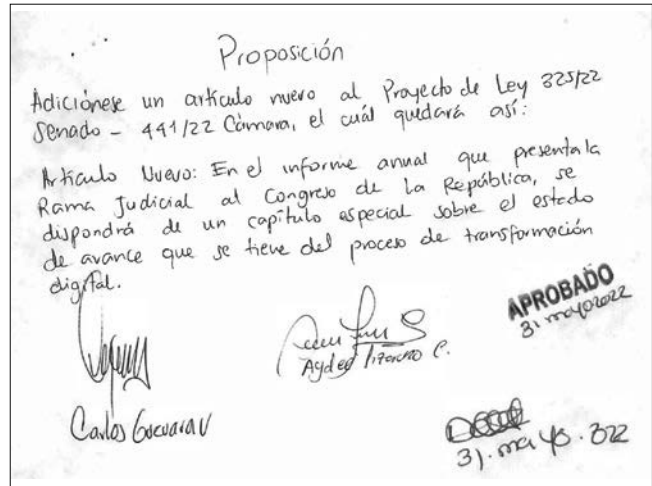 Proposición
Adiciónese un artículo nuevo al Proyecto de Ley 325/22
Senado - 441/22 Cámara, el cuál quedará así:
Artículo Nuevo: En el informe anual que presenta la
Rama Judicial al Congreso de la República, se
dispondrá de un capítulo especial sobre el estado
de avance que se tiene del proceso de transformación
digital.
APROBADO
31 mayo 2022
Aydeé Lizarazo C.
Carlos Guevara V
31. mayo. 022